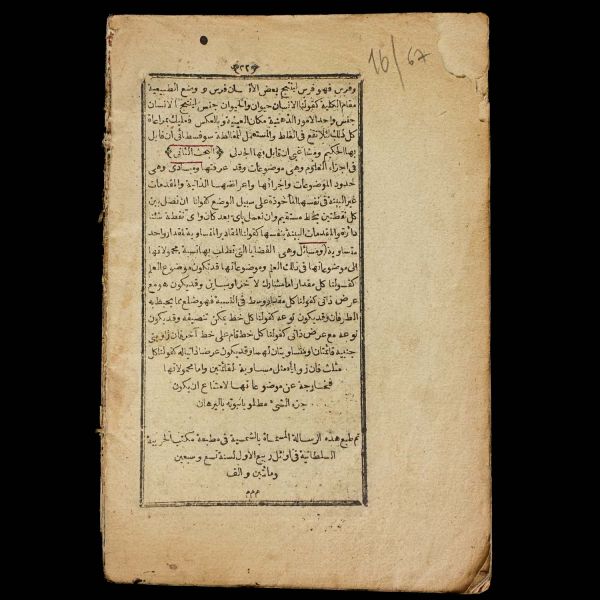 16/67
وفرس فهو فرس لينتج بعض الانسان فرس و وضع الطبيعية
مقام الكلية كقولنا الانسان حيوان والحيوان جنس لينتج الانسان
جنس واخذ الامور الذهنية مكان العينية وبالعكس فعليك بمراعاة
كل ذلك لئلا تقع في الغلط والمستعمل للمغالطة سوفسطائى ان قابل
بها الحكيم ومشاغبى ان قابل بها الجدلى ﴿البحث الثانى﴾
فى اجزاء العلوم وهى موضوعات وقد عرفتها ومبادى وهى
حدود الموضوعات واجزائها واعراضها الذاتية والمقدمات
غير البينة فى نفسها المأخوذة على سبيل الوضع كقولنا ان نصل بين
كل نقطتين بخط مستقيم وان نعمل باى بعد كان واى نقطة شئنا
دائرة والمقدمات البينة بنفسها كقولنا المقادير المتساوية لمقدار واحد
متساوية ومسائل وهى القضايا التى تطلب بها نسبة محمولاتها
الى موضوعاتها فى ذلك العلم وموضوعاتها قد تكون موضوع العلم
كقولنا كل مقدار اما مشارك لاخر او مباين وقد يكون هو مع
عرض ذاتى كقولنا كل مقدار وسط فى النسبة فهو ضلع مما يحيط به
الطرفان وقد يكون نوعه كقولنا كل خط يمكن تنصيفه وقد يكون
نوعه مع عرض ذاتى كقولنا كل خط قام على خط آخر فان زاويتى
جنبيه قائمتان او متساويتان لهما وقد يكون عرضا ذاتيا له كقولنا كل
مثلث فان زواياه مثل مساوية لقائمتين واما محمولاتها
فخارجة عن موضوعاتها لامتناع ان يكون
جزء الشئ مطلوبا ثبوته بالبرهان
تم طبع هذه الرسالة المسماة بالشمسية فى مطبعة مكتب الحربية
السلطانية فى اوائل ربيع الاول لسنة تسع وسبعين
ومائتين والف
م م م